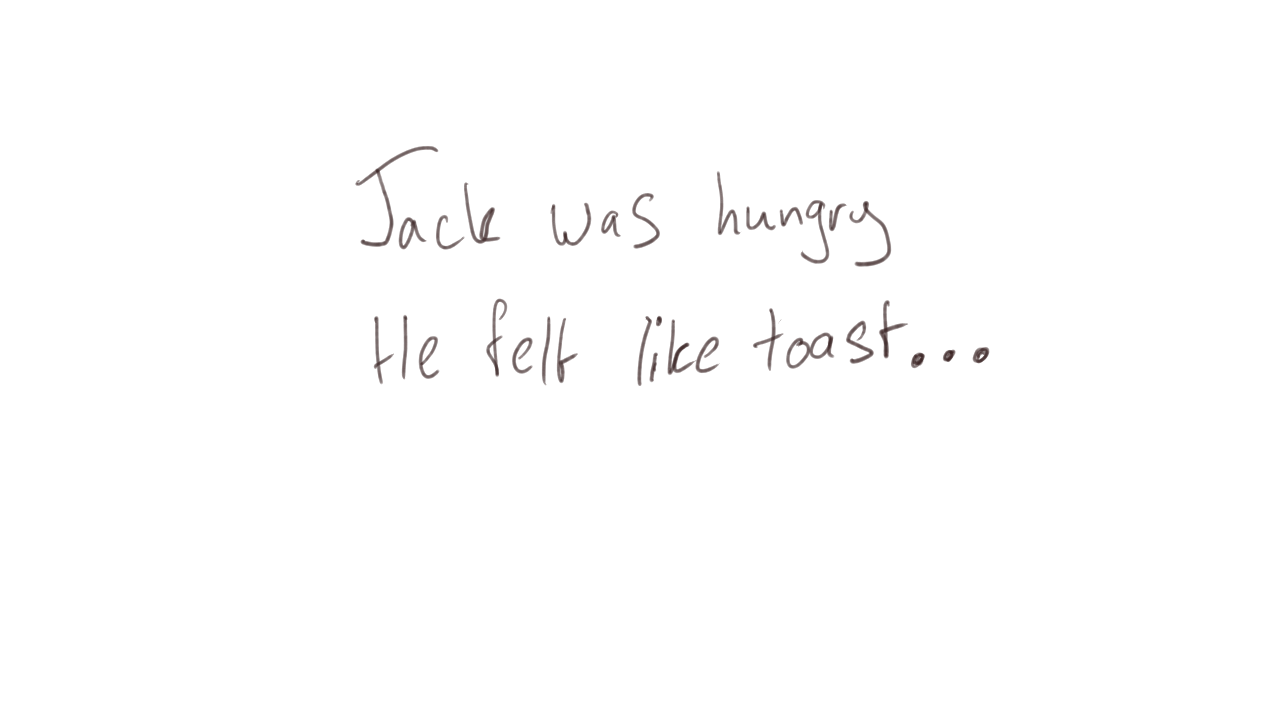 Jack was hungry
He felt like toast...